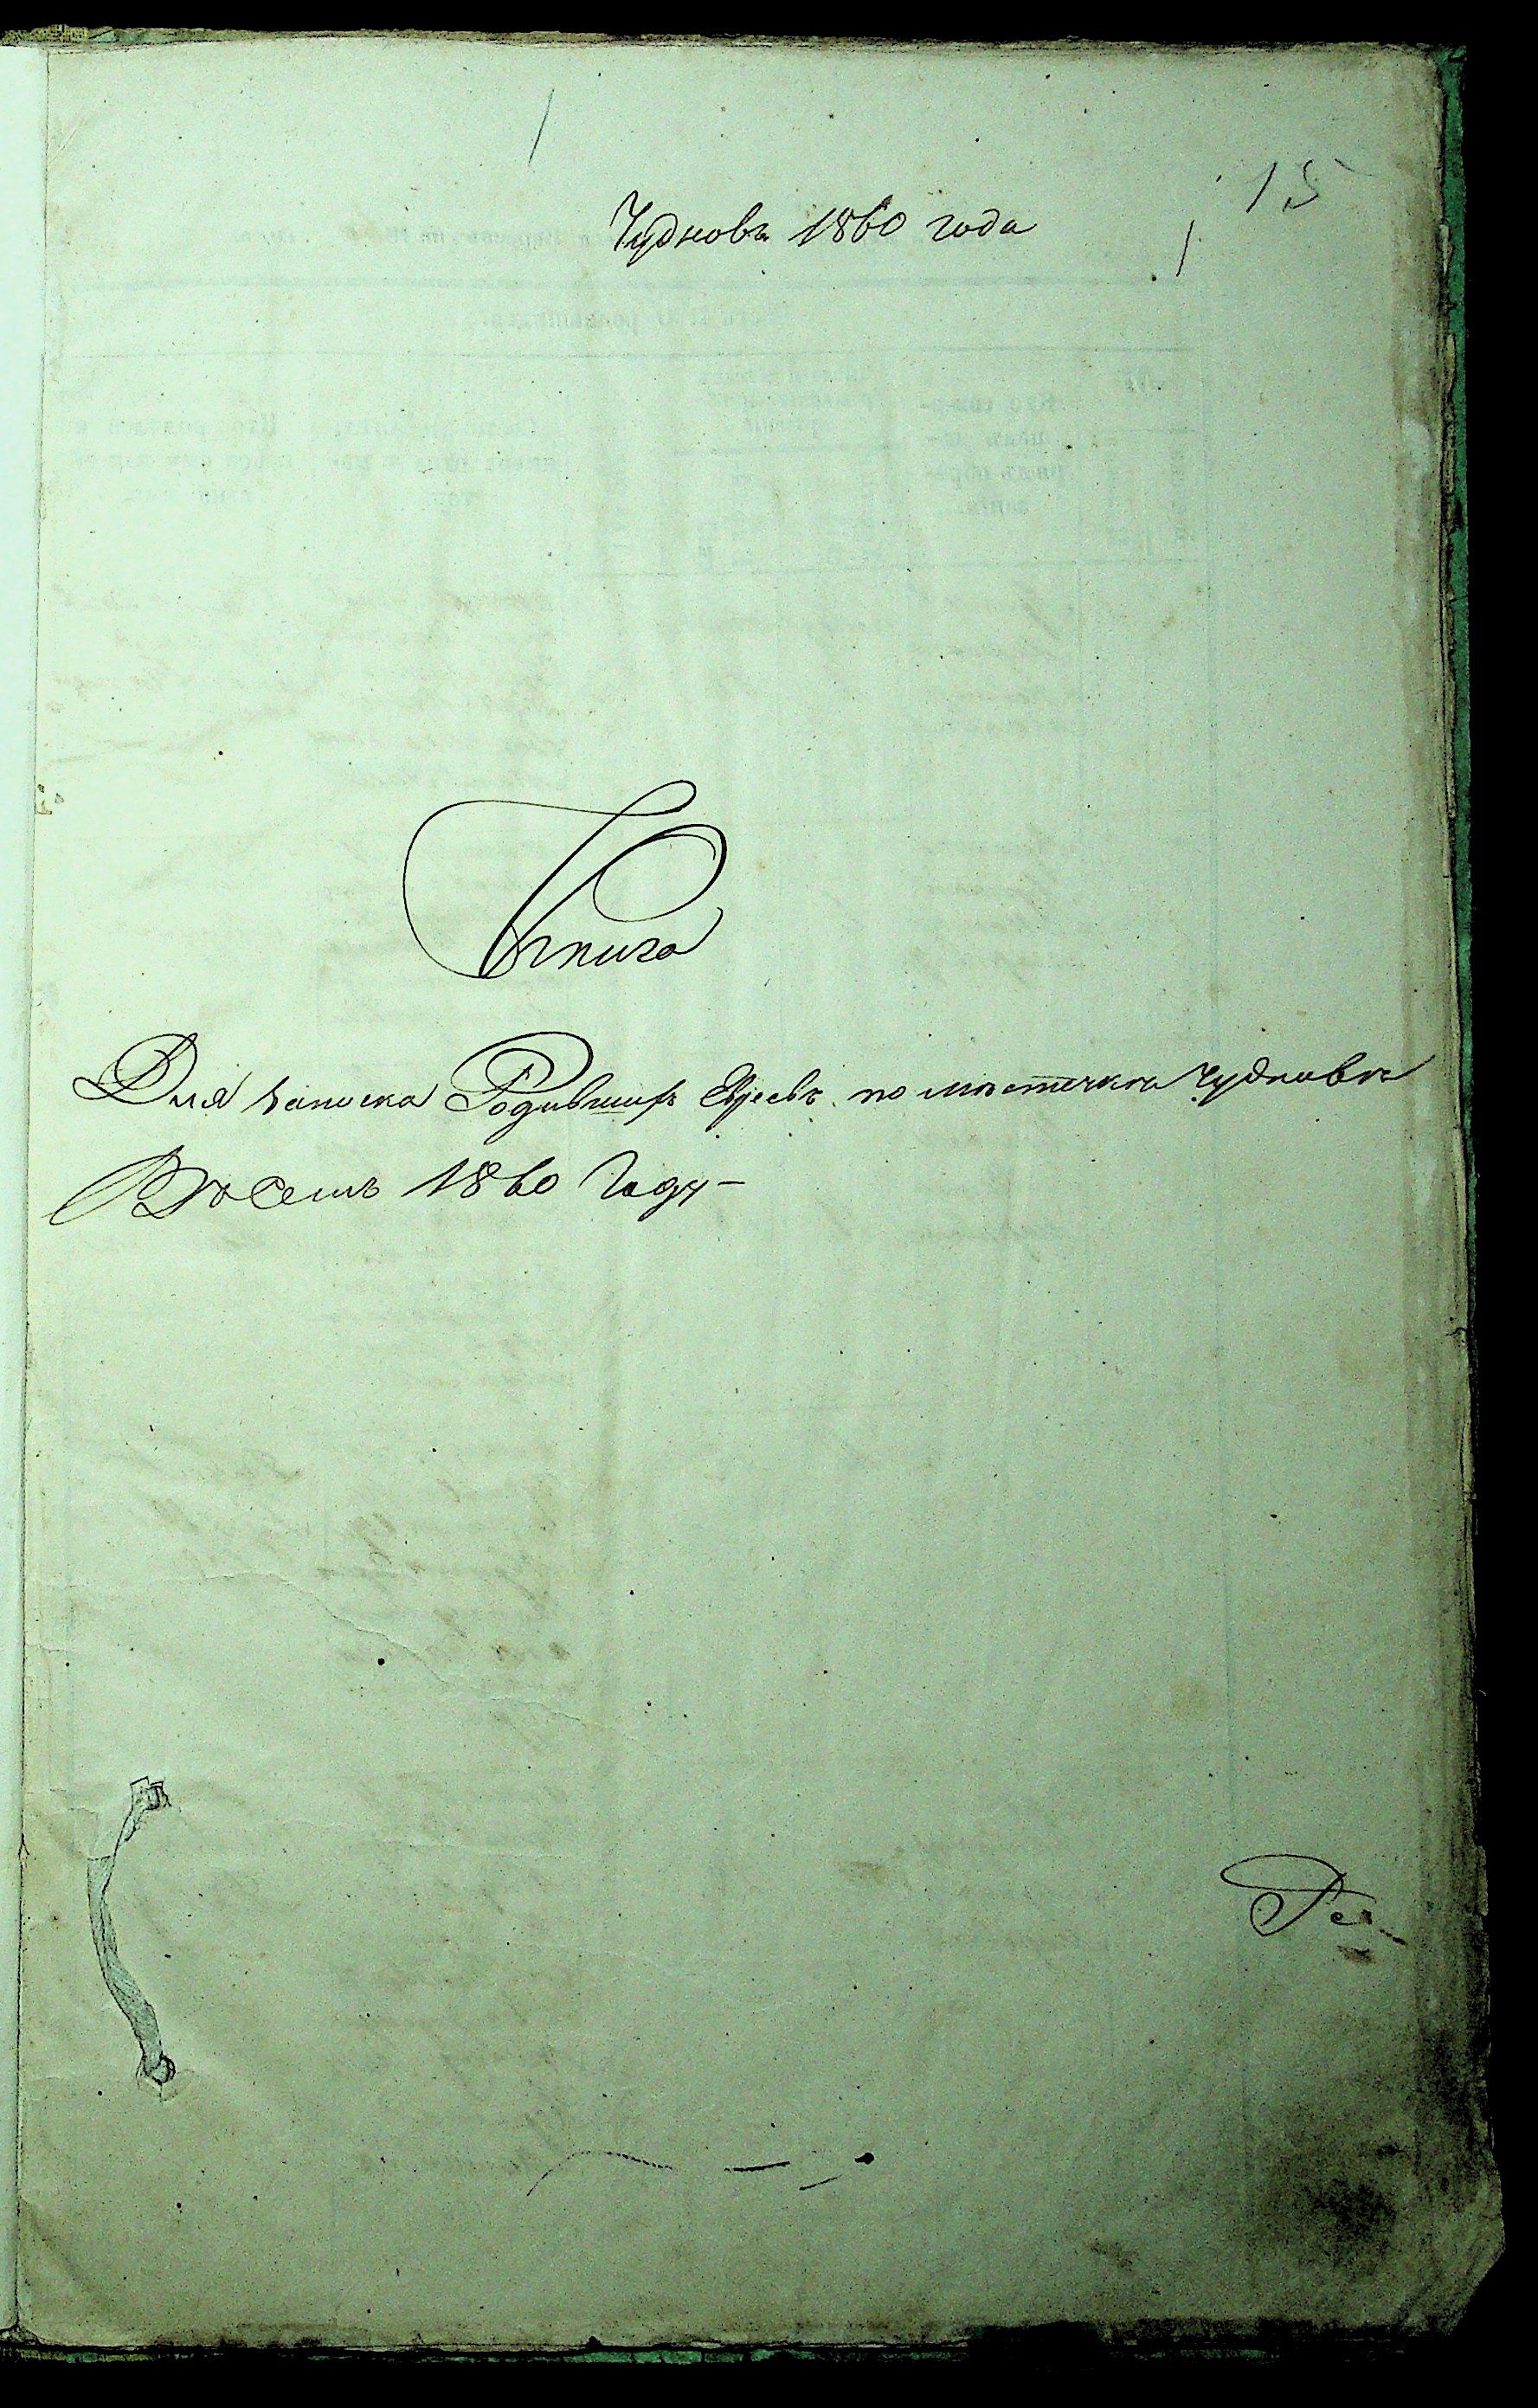 15
Чудновъ 1860 года
Книга
Для записка Родившихъ Евреевъ по мѣстечкѣ Чудновѣ
Въ Семъ 1860 Году –